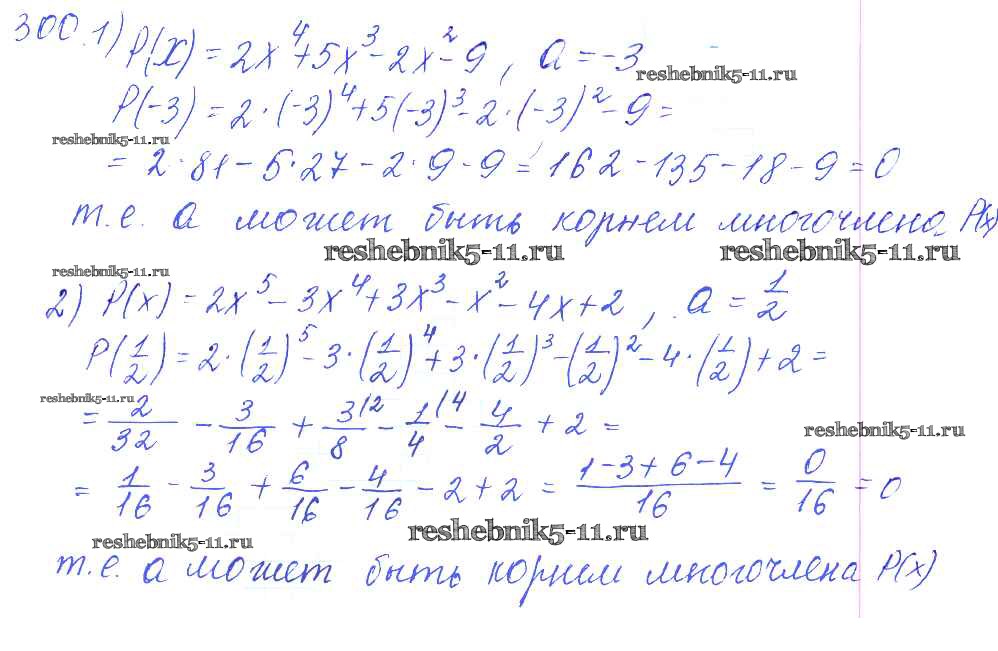 300. 1) P(x) = 2x⁴+5x³-2x²-9, a = -3
reshebnik5-11.ru
P(-3) = 2·(-3)⁴+5(-3)³-2·(-3)²-9=
reshebnik5-11.ru
= 2·81-5·27-2·9-9 = 162-135-18-9=0
т.е. а может быть корнем многочлена P(x)
reshebnik5-11.ru reshebnik5-11.ru
reshebnik5-11.ru
2) P(x) = 2x⁵-3x⁴+3x³-x²-4x+2, a = 1/2
P(1/2) = 2·(1/2)⁵-3·(1/2)⁴+3·(1/2)³-(1/2)²-4·(1/2)+2=
reshebnik5-11.ru
= 2/32 - 3/16 + 3/8 (2 - 1/4 (4 - 4/2 + 2 =
reshebnik5-11.ru
= 1/16 - 3/16 + 6/16 - 4/16 - 2+2 = (1-3+6-4)/16 = 0/16 = 0
reshebnik5-11.ru reshebnik5-11.ru
т.е. а может быть корнем многочлена P(x)